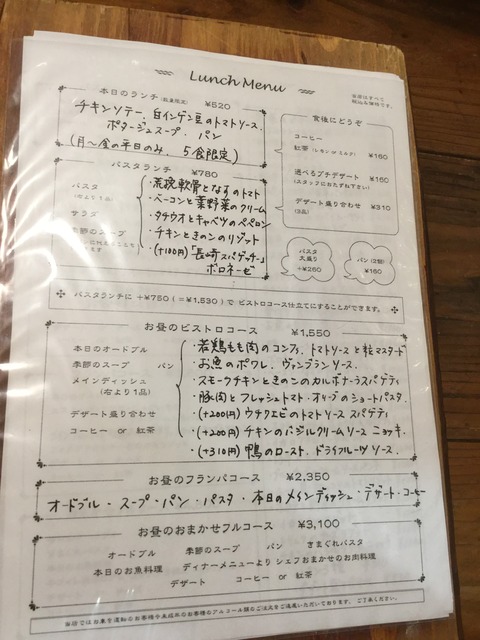 Lunch Menu
当店はすべて
税込み価格です。
本日のランチ(数量限定) ¥520
チキンソテー、白インゲン豆のトマトソース、
ポタージュスープ、パン
(月〜金の平日のみ、5食限定)
食後にどうぞ
コーヒー
紅茶(レモン or ミルク) ¥160
選べるプチデザート ¥160
(スタッフにおたずね下さい)
デザート盛り合わせ ¥310
(3品)
パスタランチ ¥780
パスタ
(右より1品)
サラダ
季節のスープ
・荒挽軟骨となすのトマト
・ベーコンと葉野菜のクリーム
・タチウオとキャベツのペペロン
・チキンときのこのリゾット
・(+100円)「長崎スパゲッチー」
ボロネーゼ
パスタ
大盛り
+¥260
パン(2個)
¥160
パスタランチに +¥750(=¥1,530)で ビストロコース仕立てにすることができます。
お昼のビストロコース ¥1,550
本日のオードブル
季節のスープ パン
メインディッシュ
(右より1品)
デザート盛り合わせ
コーヒー or 紅茶
・若鶏もも肉のコンフィ、トマトソースと粒マスタード
・お魚のポワレ、ヴァンブランソース
・スモークチキンときのこのカルボナーラスパゲティ
・豚肉とフレッシュトマト・オリーブのショートパスタ
・(+200円)ウチワエビのトマトソース スパゲティ
・(+200円)チキンのバジルクリームソース ニョッキ
・(+310円)鴨のロースト、ドライフルーツソース
お昼のフランパコース ¥2,350
オードブル・スープ・パン・パスタ・本日のメインディッシュ・デザート・コーヒー
お昼のおまかせフルコース ¥3,100
オードブル 季節のスープ パン きまぐれパスタ
本日のお魚料理 ディナーメニューより シェフおまかせのお肉料理
デザート コーヒー or 紅茶
当店ではお車を運転のお客様や未成年のお客様のアルコール類のご注文をご遠慮いただいております。ご了承ください。